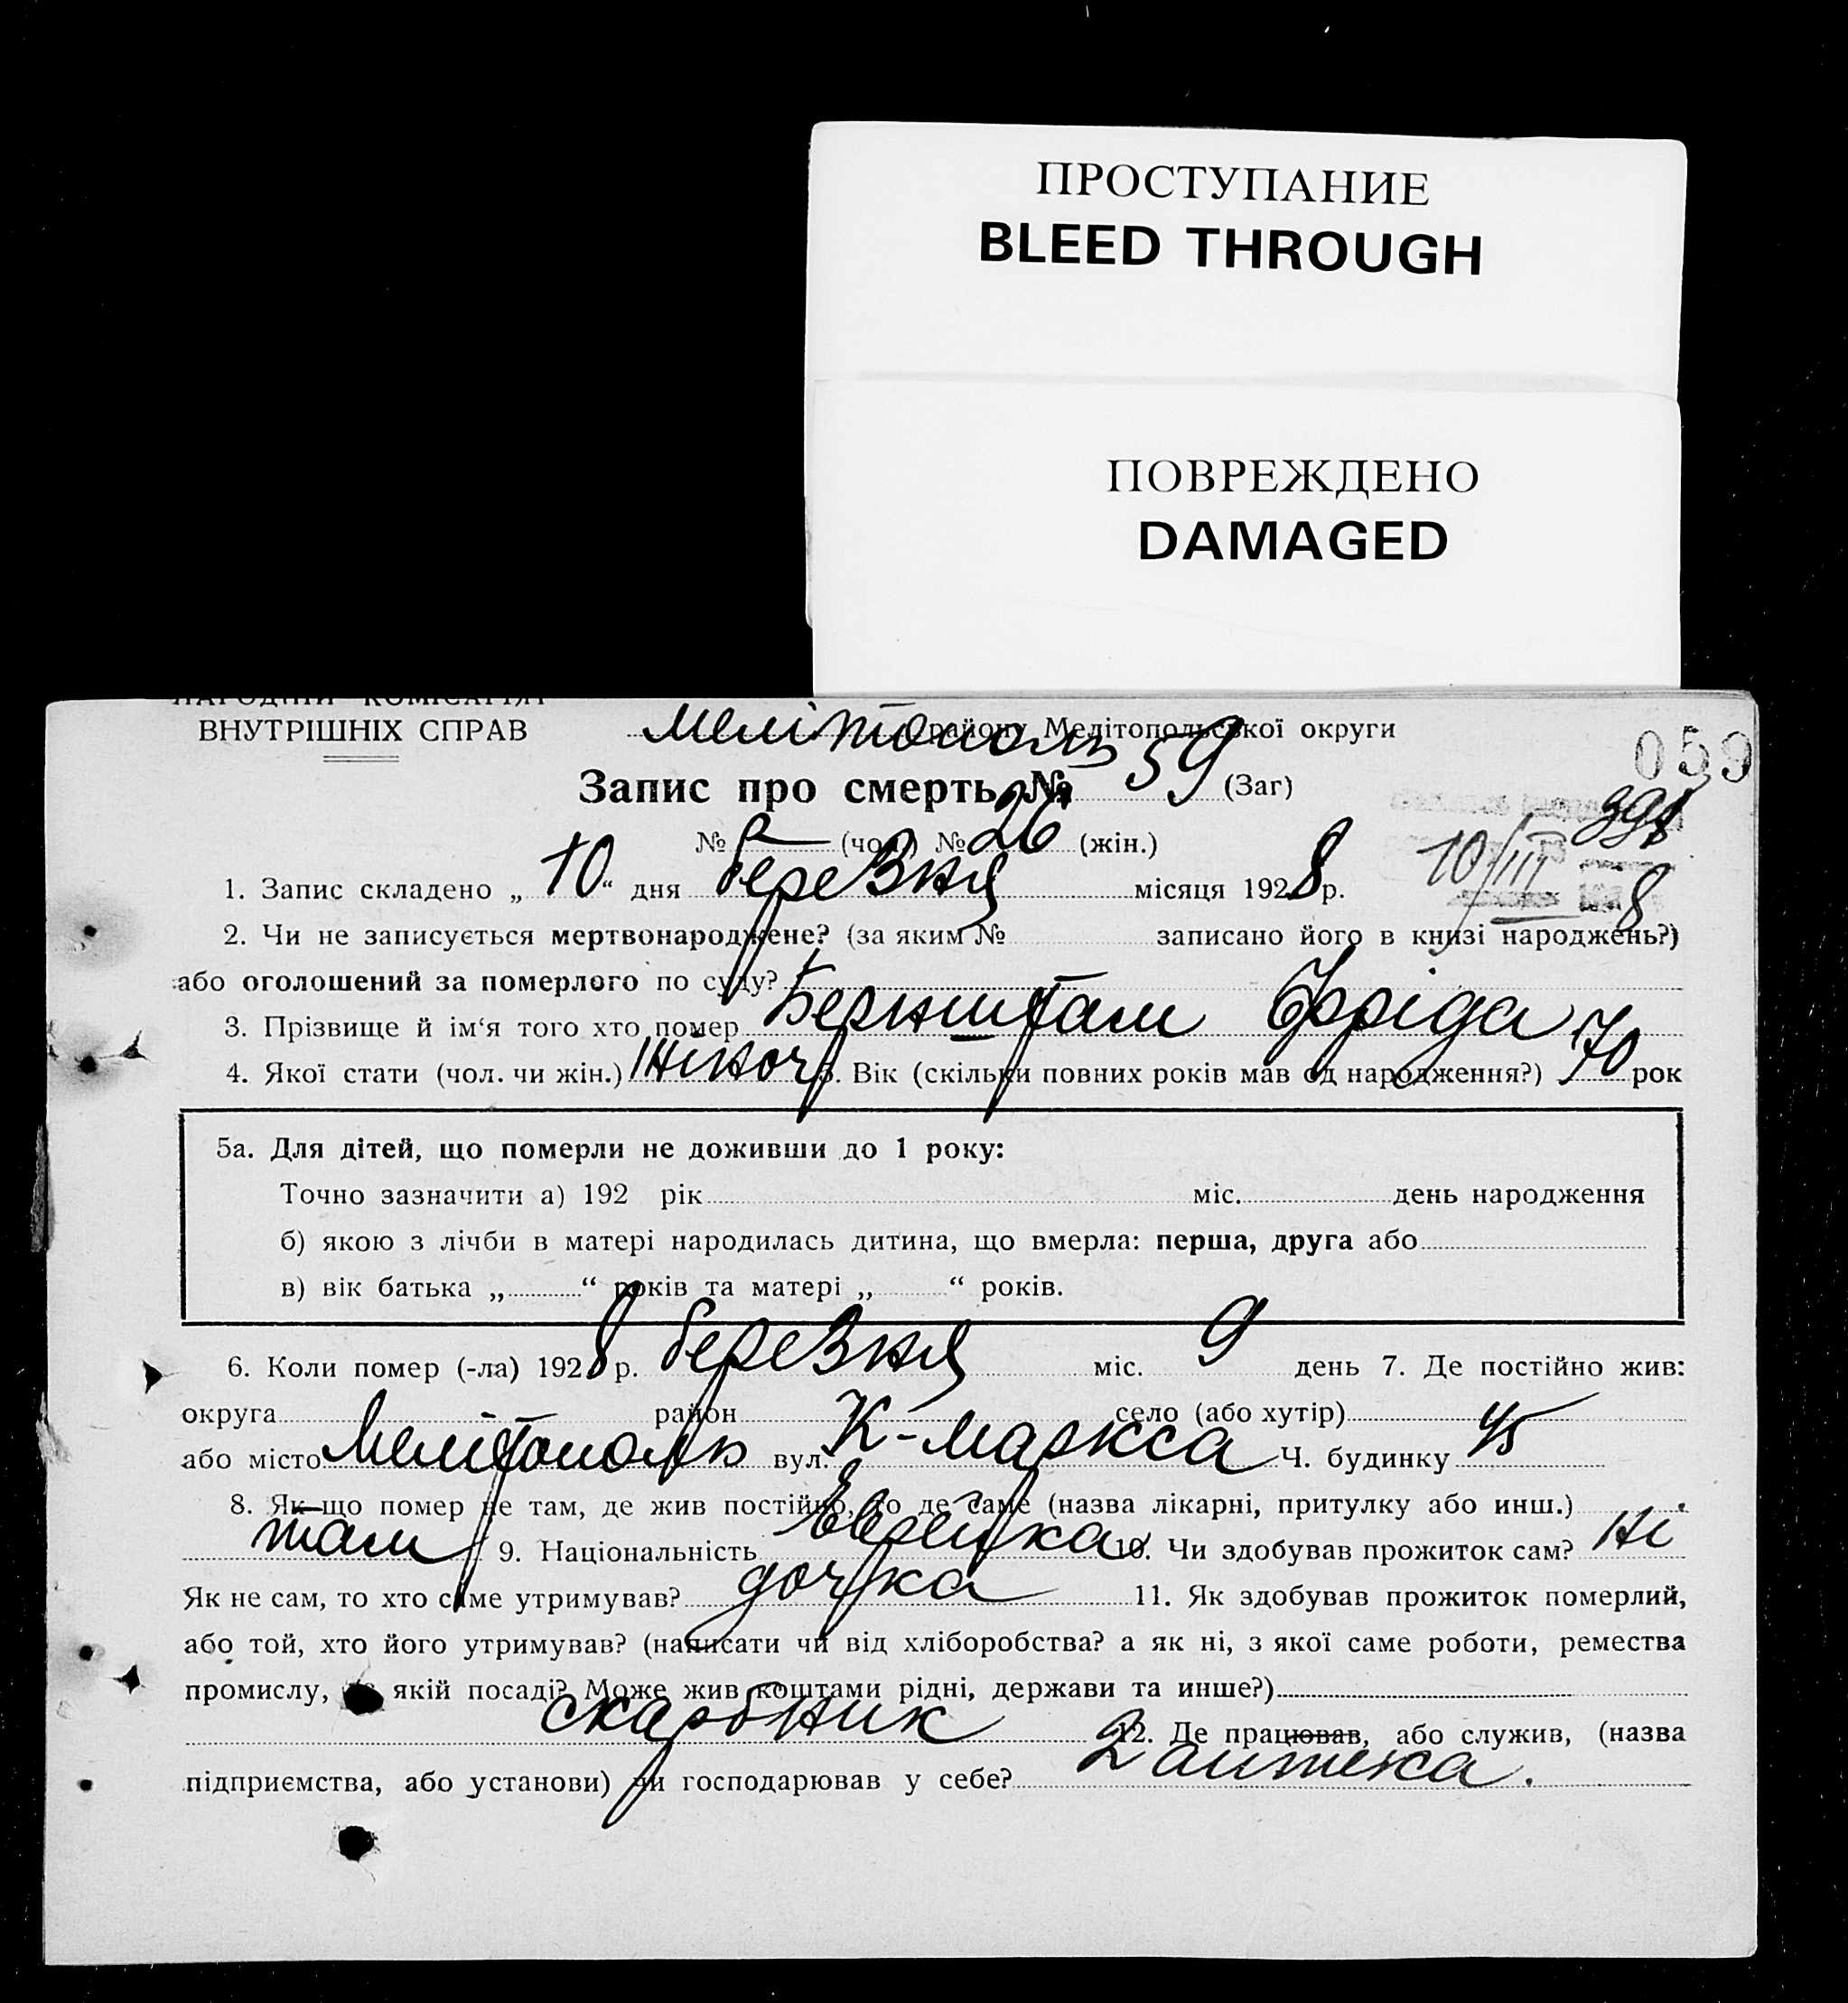 ПРОСТУПАНИЕ
BLEED THROUGH
ПОВРЕЖДЕНО
DAMAGED
НАРОДНИЙ КОМІСАРІЯТ
ВНУТРІШНІХ СПРАВ
Мелітополь району Мелітопольської округи
059
Запис про смерть № 59 (Заг)
№ (чол.) № 26 (жін.)
10/III 8
1. Запис складено „10“ дня березня місяця 1928 р.
2. Чи не записується мертвонароджене? (за яким № записано його в книзі народжень?)
або оголошений за померлого по суду?
3. Прізвище й ім‘я того хто помер Бернштам Фріда
4. Якої стати (чол. чи жін.) жіноч 5. Вік (скільки повних років мав од народження?) 70 рок
5а. Для дітей, що померли не доживши до 1 року:
Точно зазначити а) 192 рік міс. день народження
б) якою з лічби в матері народилась дитина, що вмерла: перша, друга або
в) вік батька „ “ років та матері „ “ років.
6. Коли помер (-ла) 1928 р. березня міс. 9 день 7. Де постійно жив:
округа район село (або хутір)
або місто Мелітополь вул. К-Маркса Ч. будинку 45
8. Як-що помер не там, де жив постійно, то де саме (назва лікарні, притулку або инш.)
там 9. Національність Еврейка 10. Чи здобував прожиток сам? Ні
Як не сам, то хто саме утримував? дочка 11. Як здобував прожиток померлий,
або той, хто його утримував? (написати чи від хліборобства? а як ні, з якої саме роботи, ремества
промислу, якій посаді? Може жив коштами рідні, держави та инше?)
скарбник 12. Де працював, або служив, (назва
підприємства, або установи) чи господарював у себе? 2 аптека.